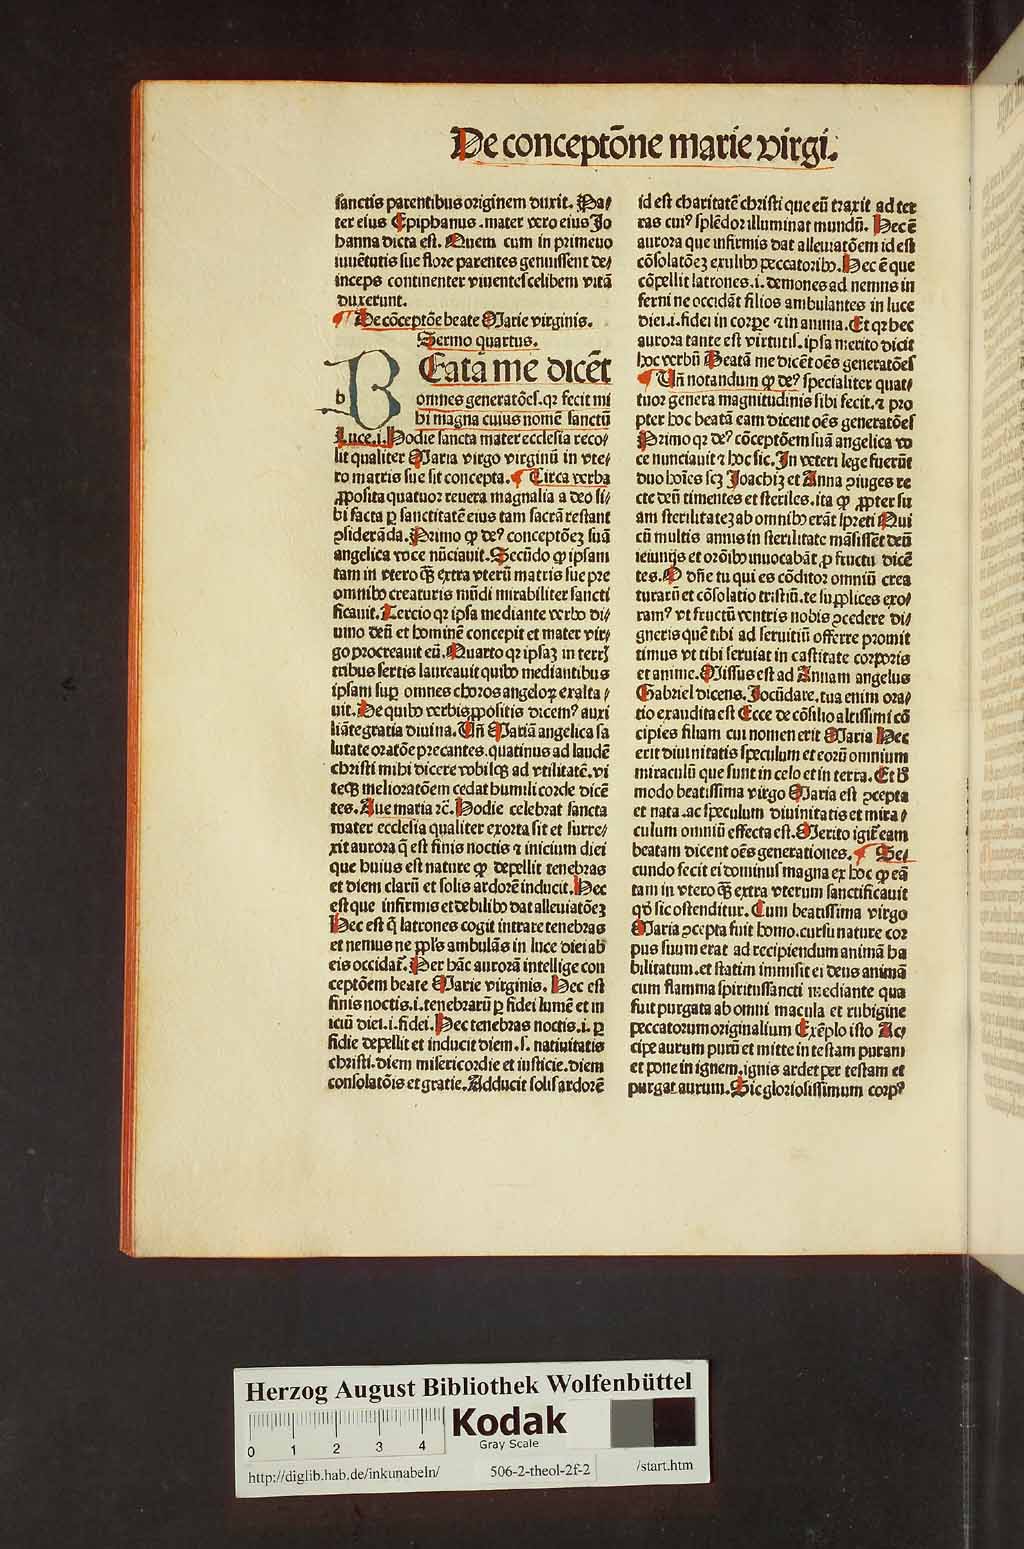 De conceptōne marie virgi.
sanctis parentibus originem duxit. Pa⸗
ter eius Epiphanus. mater vero eius Jo
hanna dicta est. Quem cum in primeuo
iuuētutis sue flore parentes genuissent de⸗
inceps continenter viuentes celibem vitā
duxerunt.
¶ De cōceptōe beate Marie virginis.
Sermo quartus.
BEatā me dicēt
b
omnes generatōes. qꝛ fecit mi
bi magna cuius nomē sanctū
Luce.i. Hodie sancta mater ecclesia reco⸗
lit qualiter Maria virgo virginū in vte⸗
ro matris sue sit concepta. ¶ Circa verba
ꝓposita quatuor reuera magnalia a deo si⸗
bi facta ꝑ sanctitatē eius tam sacrā restant
ↄsiderāda. Primo ꝙ deꝰ conceptōeꝫ suā
angelica voce nūciauit. Secūdo ꝙ ipsam
tam in vtero qꝫ̄ extra vterū matris sue pre
omnibꝰ creaturis mūdi mirabiliter sancti
ficauit. Tercio qꝛ ipsa mediante verbo di⸗
uino deū et hominē concepit et mater vir⸗
go procreauit eū. Quarto qꝛ ipsaꝫ in terrꝭ
tribus sertis laureauit quibꝰ mediantibus
ipsam suꝑ omnes choros angeloꝝ exalta⸗
uit. De quibꝰ verbis ꝓpositis dicemꝰ auxi
liāte gratia diuina. Vn̄ Mariā angelica sa
lutate oratōe precantes. quatinus ad laudē
christi mihi dicere vobisqꝫ ad vtilitatē. vi
teqꝫ melioratōem cedat humili corde dicē
tes. Aue maria ꝛc̄. Hodie celebrat sancta
mater ecclesia qualiter exorta sit et surre⸗
xit aurora q̄ est finis noctis ⁊ inicium diei
que huius est nature ꝙ depellit tenebras
et diem clarū et solis ardorē inducit. Hec
est que infirmis et debilibꝰ dat alleuiatōeꝫ
Hec est q̄ latrones cogit intrare tenebras
et nemus ne ppl's ambulās in luce diei ab
eis occidat̄. Per hāc aurorā intellige con
ceptōem beate Marie virginis. Hec est
finis noctis.i. tenebrarū ꝑ fidei lumē et in
iciū diei.i. fidei. Hec tenebras noctis.i. ꝑ
fidie depellit et inducit diem. s. natiuitatis
christi. diem misericordie et iusticie. diem
consolatōis et gratie. Adducit solis ardorē
id est charitatē christi que eū traxit ad ter
ras cuiꝰ splēdor illuminat mundū. Hec ē
aurora que infirmis dat alleuiatōem id est
cōsolatōeꝫ exulibꝰ peccatoribꝰ. Hec ē que
cōpellit latrones.i. demones ad nemus in
ferni ne occidāt filios ambulantes in luce
diei.i. fidei in corpꝛe ⁊ in anima. Et qꝛ hec
aurora tante est virtutis. ipsa merito dicit
hoc verbū Beatā me dicēt oēs generatōes
¶ Vn̄ notandum ꝙ deꝰ specialiter quat⸗
tuor genera magnitudinis sibi fecit. ⁊ pro
pter hoc beatā eam dicent oēs generatōes
Primo qꝛ deꝰ cōceptōem suā angelica vo
ce nunciauit ⁊ hoc sic. In veteri lege fuerūt
duo hoīes scꝫ Joachiꝫ et Anna ↄiuges re
cte deū timentes et steriles. ita ꝙ ꝓpter su
am sterilitateꝫ ab omnibꝰ erāt spreti Qui
cū multis annis in sterilitate māsissēt deū
ieiunijs et orōibꝰ inuocabāt. ꝓ fructu dicē
tes. O dn̄e tu qui es cōditor omniū crea
turarū et cōsolatio tristiū. te supplices exo⸗
ramꝰ vt fructū ventris nobis ꝓcedere di⸗
gneris quē tibi ad seruitiū offerre promit
timus vt tibi seruiat in castitate corporis
et anime. Missus est ad Annam angelus
Gabriel dicens. Jocūdare. tua enim ora⸗
tio exaudita est Ecce de cōsilio altissimi cō
cipies filiam cui nomen erit Maria Hec
erit diuinitatis speculum et eorū omnium
miraculū que sunt in celo et in terra. Et B̄
modo beatissima virgo Maria est ↄcepta
et nata. ac speculum diuinitatis et mira⸗
culum omniū effecta est. Merito igit̄ eam
beatam dicent oēs generationes. ¶ Se⸗
cundo fecit ei dominus magna ex hoc ꝙ eā
tam in vtero qꝫ̄ extra vterum sanctificauit
qd̓ sic ostenditur. Cum beatissima virgo
Maria ↄcepta fuit homo. cursu nature cor
pus suum erat ad recipiendum animā ha
bilitatum. et statim immisit ei deus animā
cum flamma spiritussancti mediante qua
fuit purgata ab omni macula et rubigine
peccatorum originalium Exēplo isto Ac⸗
cipe aurum purū et mitte in testam purani
et pone in ignem. ignis ardet per testam et
purgat aurum. Sic gloriosissimum corpꝰ
Herzog August Bibliothek Wolfenbüttel
0 1 2 3 4
Kodak
Gray Scale
http://diglib.hab.de/inkunabeln/ 506-2-theol-2f-2 /start.htm